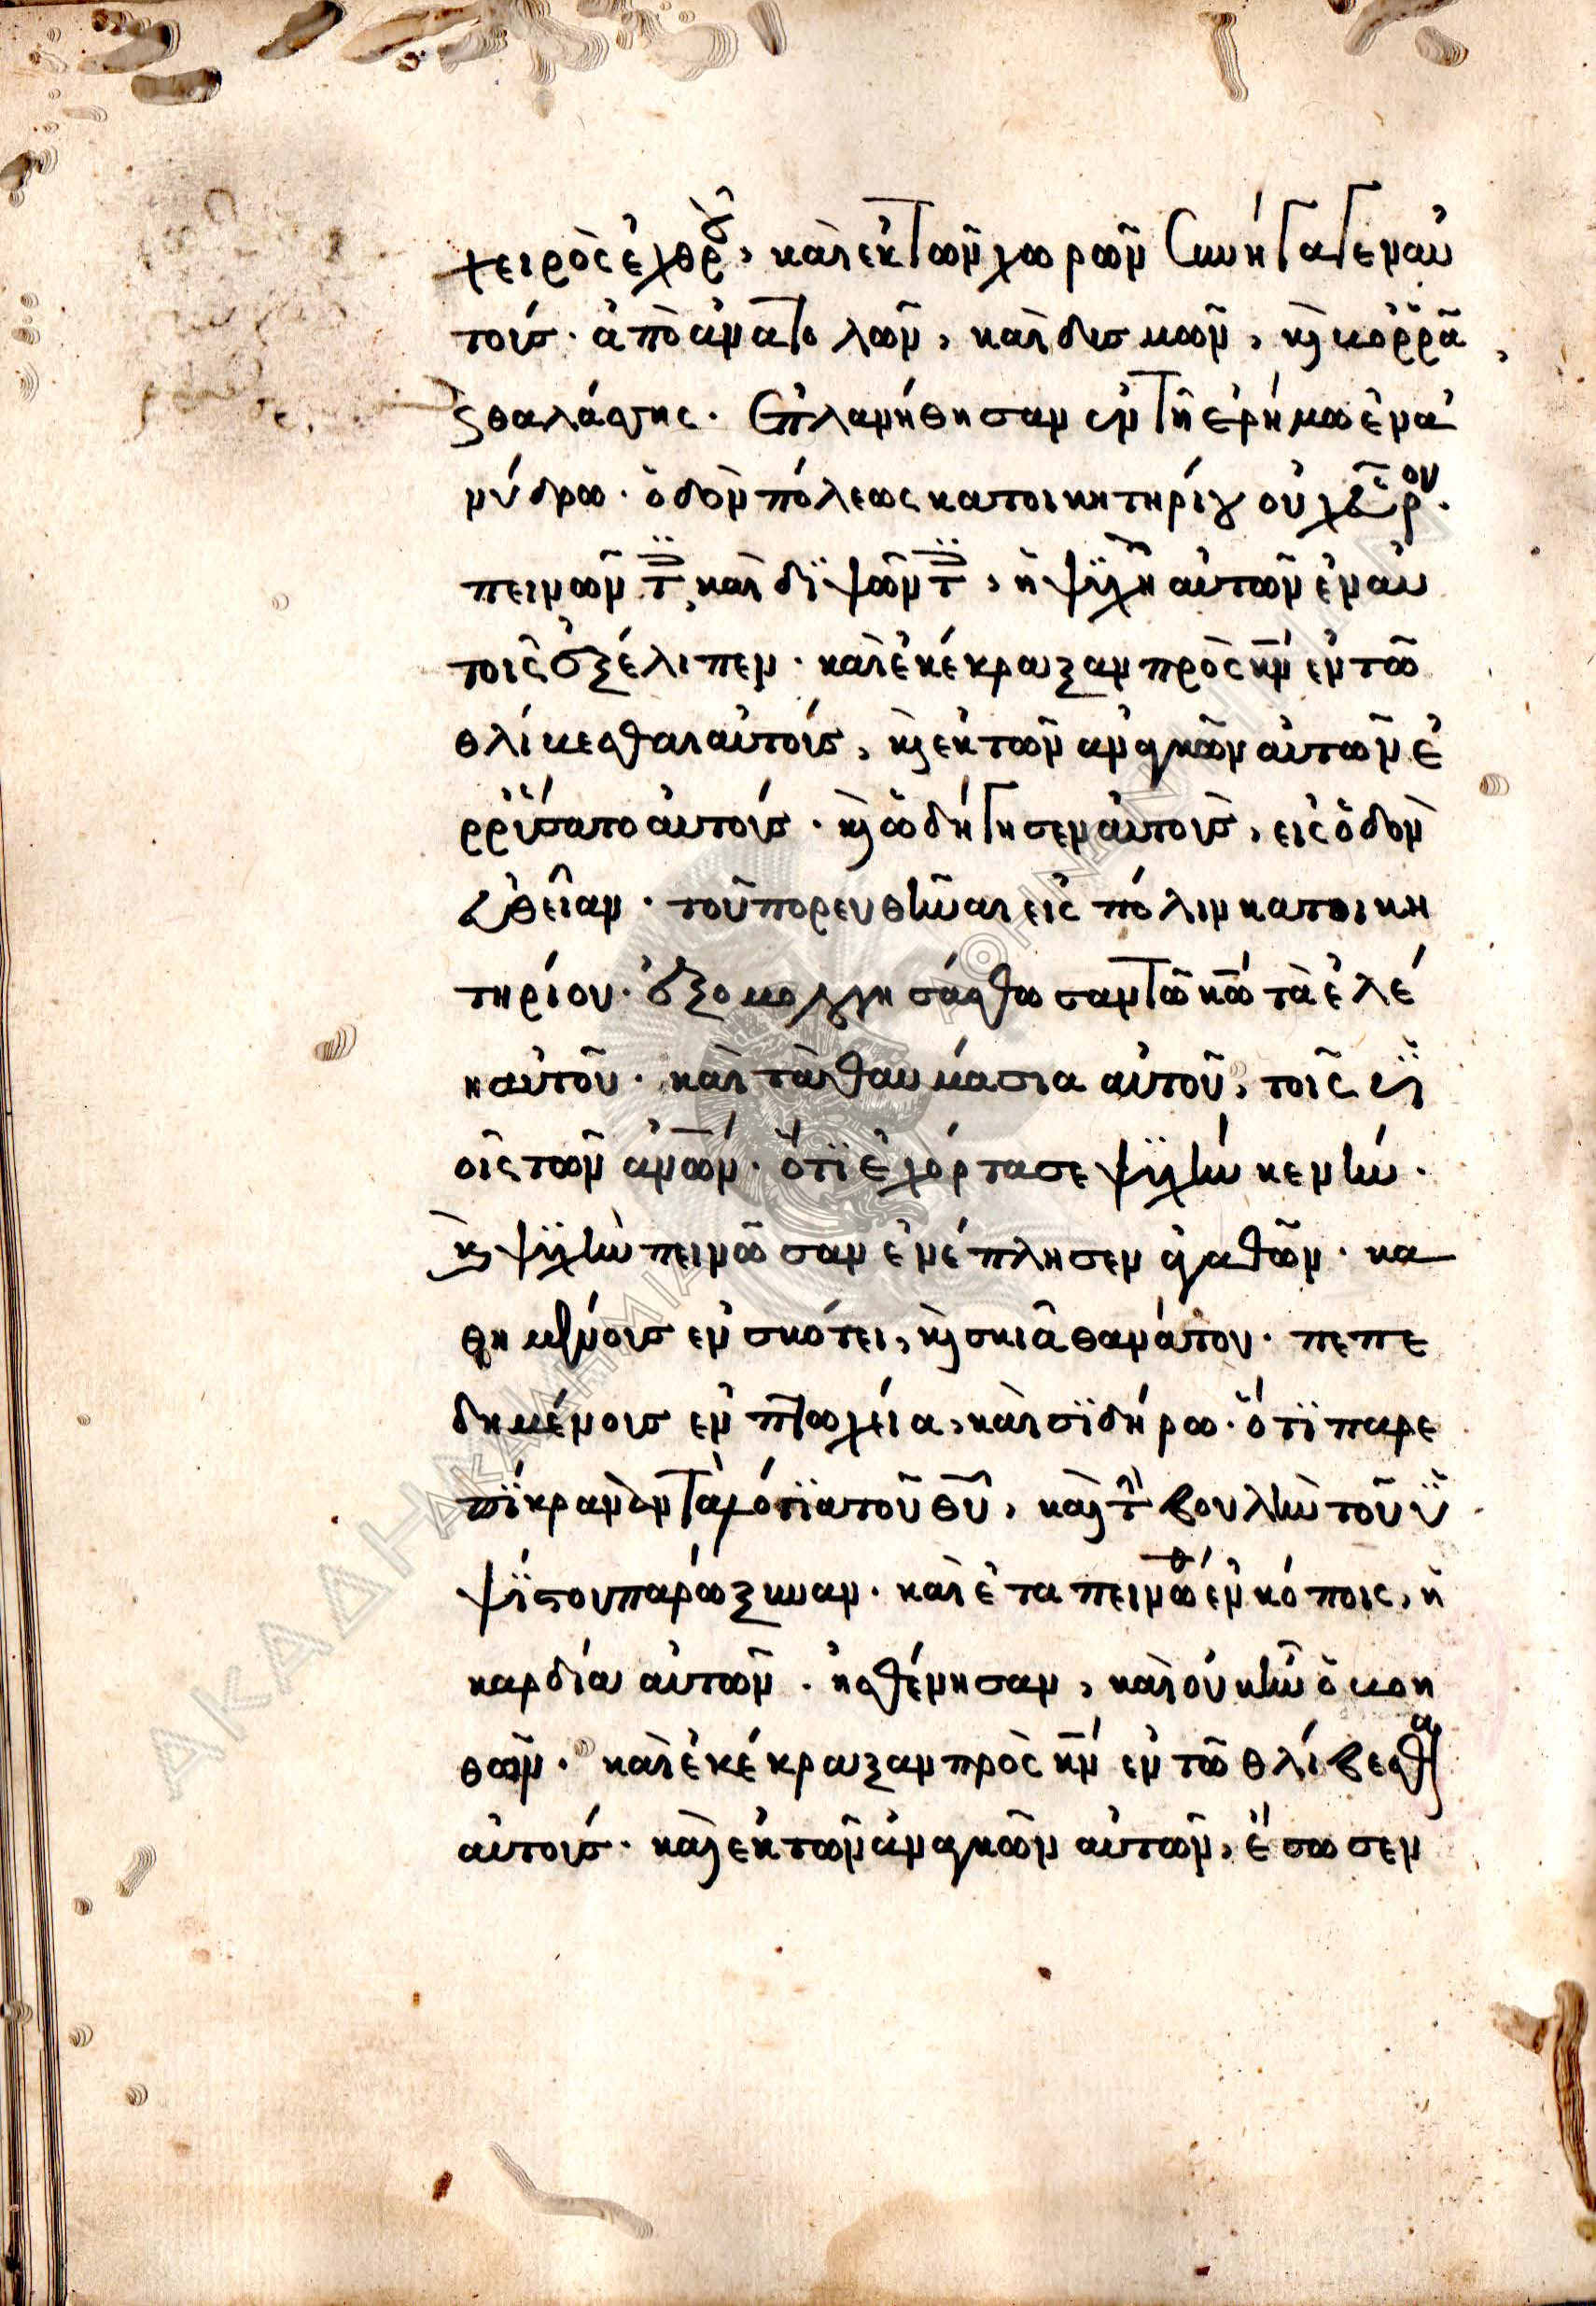 χειρὸς ἐχθροῦ, καὶ ἐκ τῶν χωρῶν συνήγαγεν αὐ
τοὺς. ἀπὸ ἀνατολῶν, καὶ δυσμῶν, κ(αὶ) βορρᾶ
ς θαλάσσης. Ἐπλανήθησαν ἐν τῇ ἐρήμω ἐν ἀ
νύδρω. ὁδὸν πόλεως κατοικητηρίου οὐχ εὗρον.
πεινῶντ(ες) καὶ διψῶντ(ες), ἡ ψυχὴ αὐτῶν ἐν αὐ
τοῖς ἐξέλιπεν. καὶ ἐκέκραξαν πρὸς κ̅ν̅ ἐν τῶ
θλίβεσθαι αὐτούς, κ(αὶ) ἐκ τῶν ἀναγκῶν αὐτῶν ἐ
ρρύσατο αὐτούς. κ(αὶ) ὡδήγησεν αὐτοὺς, εἰς ὁδὸν
εὐθεῖαν. τοῦ πορευθῆναι εἰς πόλιν κατοικη
τηρίου. ἐξομολογησάσθωσαν τῶ κ̅ω̅ τὰ ἐλέ
η αὐτοῦ. καὶ τὰ θαυμάσια αὐτοῦ, τοῖς υἱ
οῖς τῶν ἀ̅ν̅ω̅ν̅. ὅτι ἐχόρτασε ψυχὴν κενήν.
κ(αὶ) ψυχὴν πεινῶσαν ἐνέπλησεν ἀγαθῶν. κα
θημένους ἐν σκότει, κ(αὶ) σκιᾶ θανάτου. πεπε
δημένους ἐν πτωχεία, καὶ σιδήρω. ὅτι παρε
πίκραναν τὰ λόγια τοῦ θ̅υ̅, καὶ τ(ὴν) βουλὴν τοῦ ὑ
ψίστου παρώξυναν. καὶ ἐταπεινώθ(η) ἐν κόποις, ἡ
καρδία αὐτῶν. ἠσθένησαν, καὶ οὐκ ἦν ὁ βοη
θῶν. καὶ ἐκέκραξαν πρὸς κ̅ν̅ ἐν τῶ θλίβεσθαι
αὐτούς. καὶ ἐκ τῶν ἀναγκῶν αὐτῶν, ἔσωσεν
ΑΚΑΔΗΜΙΑ ΑΘΗΝΩΝ